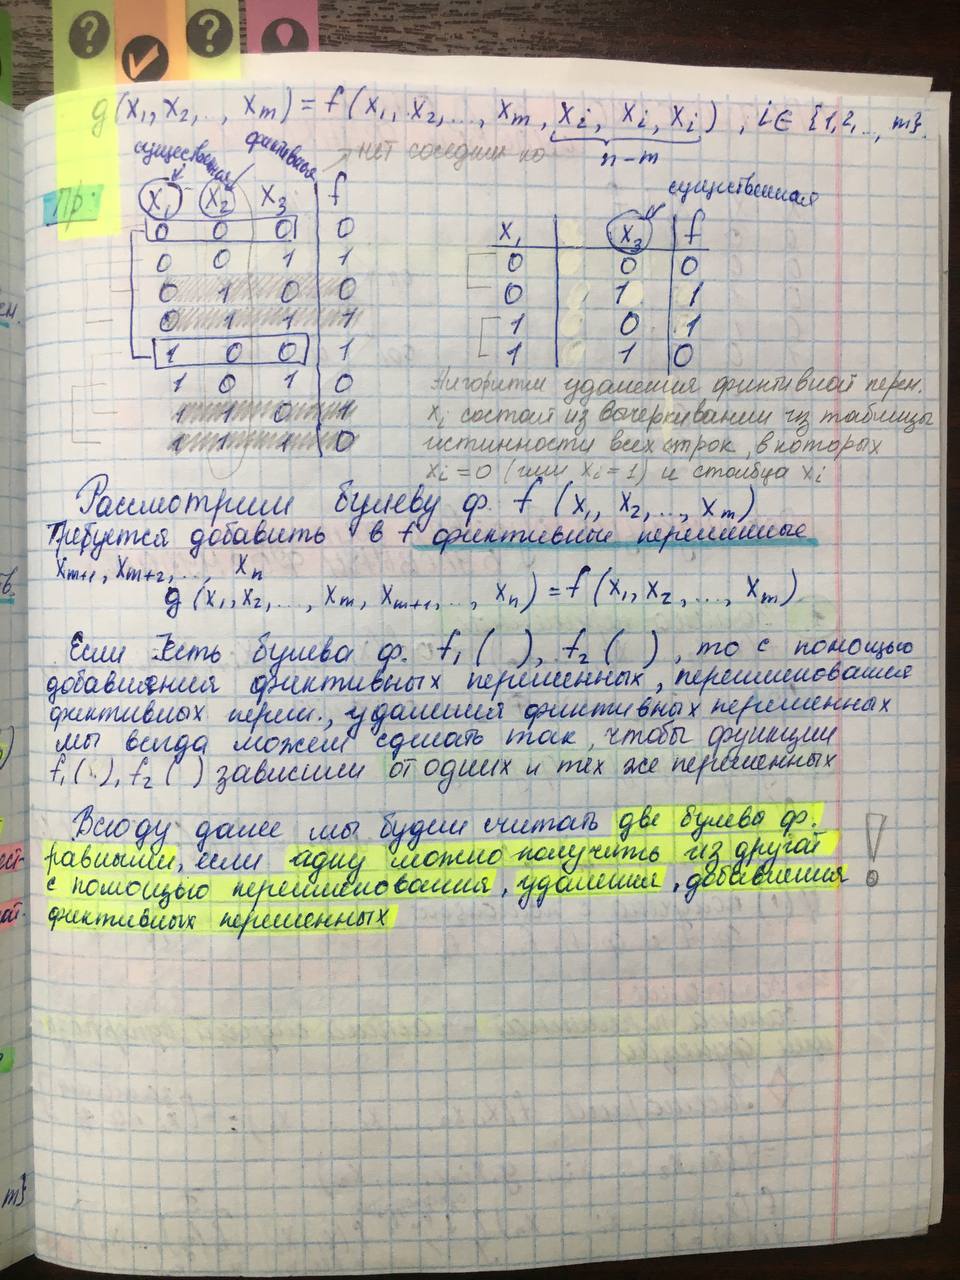 g(x₁, x₂, .., xₘ) = f(x₁, x₂, ..., xₘ, xᵢ, xᵢ, xᵢ), i ∈ {1,2,.., m}.
n-m
существенная фиктивная нет соседних по
Пр:
x₁ x₂ x₃ f
0 0 0 0
0 0 1 1
0 1 0 0
0 1 1 1
1 0 0 1
1 0 1 0
1 1 0 1
1 1 1 0
существенная
x₁ x₃ f
0 0 0
0 1 1
1 0 1
1 1 0
Алгоритм удаления фиктивной перем.
xᵢ состоит из вычеркивании из таблицы
истинности всех строк, в которых
xᵢ = 0 (или xᵢ = 1) и столбца xᵢ
Рассмотрим булеву ф. f (x₁, x₂, ..., xₘ)
Требуется добавить в f фиктивные переменные
xₘ₊₁, xₘ₊₂, ..., xₙ
g (x₁, x₂, ..., xₘ, xₘ₊₁, .., xₙ) = f (x₁, x₂, ..., xₘ)
Если есть булева ф. f₁ ( ), f₂ ( ), то с помощью
добавления фиктивных переменных, переименования
фиктивных перем., удаления фиктивных переменных
мы всегда можем сделать так, чтобы функции
f₁ ( ), f₂ ( ) зависили от одних и тех же переменных
Всюду далее мы будем считать две булевы ф.
равными, если одну можно получить из другой
с помощью переименования, удаления, добавления
фиктивных переменных !
m}